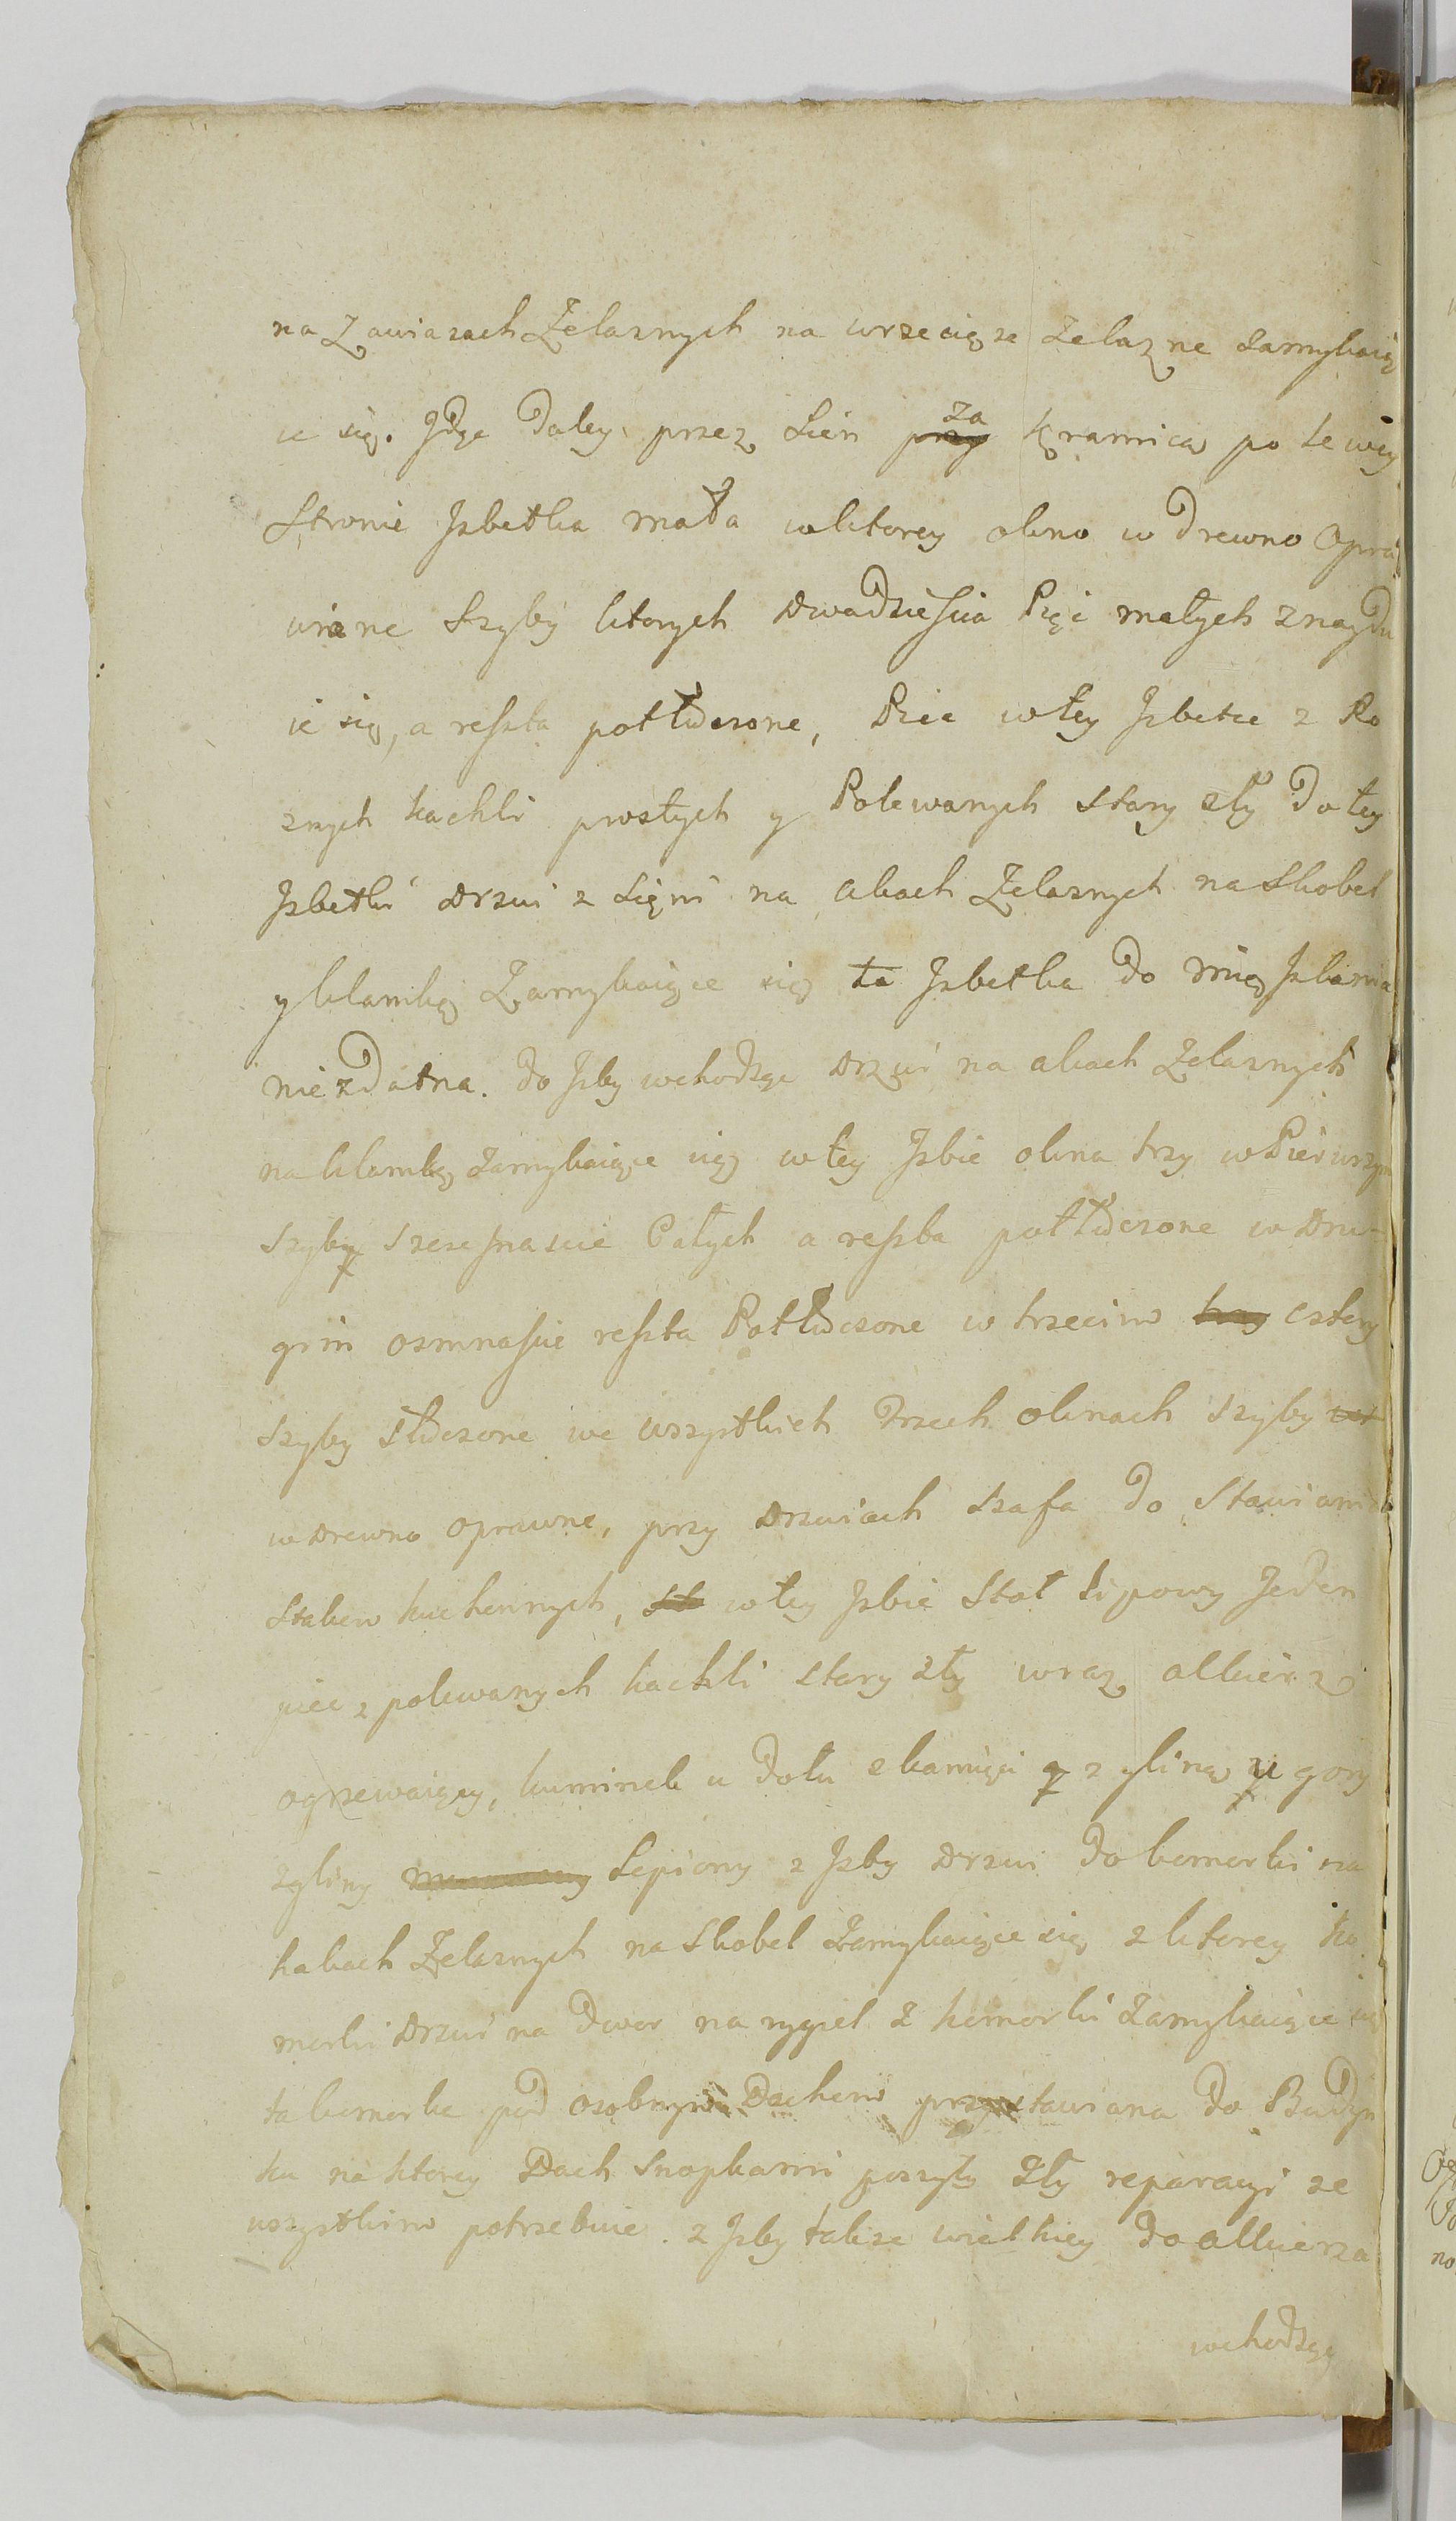 na Zawiasach Żelaznych na wrzecięze żelazne zamykaią
ce się. Jdąc daley przez Sień za kramicą po lewey
Stronie Jzbetka mała wktorey okno w drewno Opra
wione Szyby ktorych dwadziescia Pięć małych znaydu
ie się, a reszta potłuczone, Piec wtey Jzbetce z Ro
znych kachli prostych y Polewanych stary zły do tey
Jzbetki drzwi z Sięni na akach Żelaznych na Skobel
y klamkę Zamykaiące się ta Jzbetka do mięszkania
niezdatna. do Jzby wchodząc drzwi na akach Żelaznych
na klamkę zamykaiące się wtey Jzbie okna trzy wPierwszym
szyby szesznascie Całych a reszta potłuczone w dru-
gim osmnascie reszta Potłuczone w trzecim trzy cztery
szyby stłuczone we wszystkich trzech oknach szyby
wdrewno oprawne, przy drzwiach szafa do Stawiania
Statkow kuchennych, st wtey Jzbie Stoł lipowy Jeden
piec z polewanych kachli stary zły wraz alkierz
ogrzewaiący, kuminek u dołu z kamięni y z gliną u gory
zgliny Lepiony z Jzby drzwi do komorki na
hakach Żelaznych na Skobel Zamykaiące się z ktorey ko
morki drzwi na dwor na rygiel z komorki zamykaiące się
ta komorka pod osobnym Dachem przystawiana do Budyn
ku na ktorey Dach Snopkami poszyty zły reparacyi ze
wszystkim potrzebuie. z Jzby takze wielkiey do alkierza
wchodząc